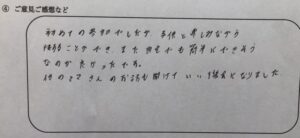 ④ ご意見ご感想など
初めての参加でしたが 子供と楽しみながら
作ることができ、また自宅でも簡単にできそう
なのがよかったです。
他のママさんのお話も聞けて いい機会となりました